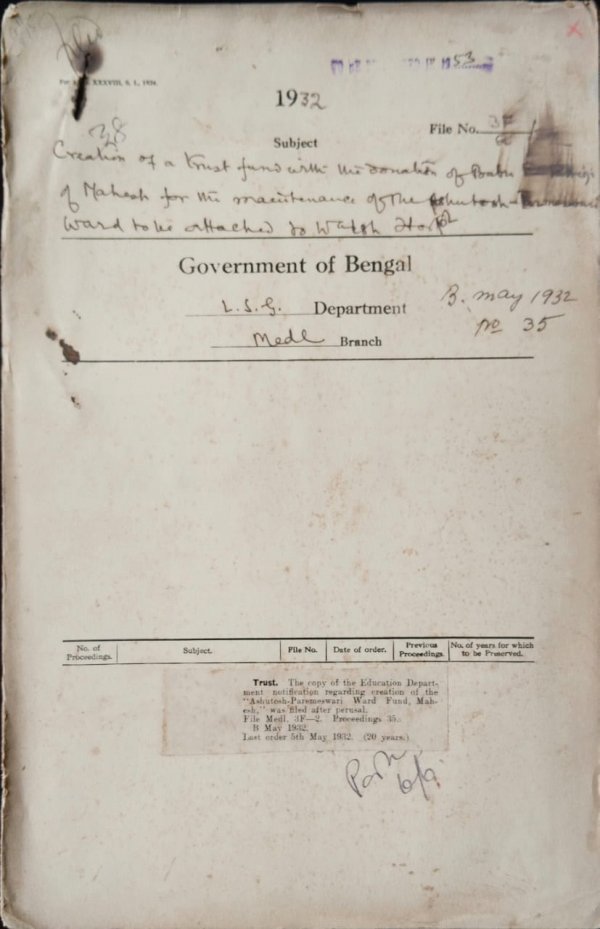 XXXVIII, S. I., 1926.
53
1932
38
File No. 3F/2
Subject
Creation of a trust fund with the donation of Babu
of Mahesh for the maintenance of the Ashutosh
Ward to be attached to Walsh Hospl
Government of Bengal
L. S. G. Department
B. May 1932
Medl Branch
No 35
No. of Proceedings. Subject. File No. Date of order. Previous Proceedings. No. of years for which to be Preserved.
Trust. The copy of the Education Depart-
ment notification regarding creation of the
"Ashutosh-Paremeswari Ward Fund, Mah-
esh," was filed after perusal.
File Medl. 3F—2. Proceedings 35.
B May 1932.
Last order 5th May 1932. (20 years.)